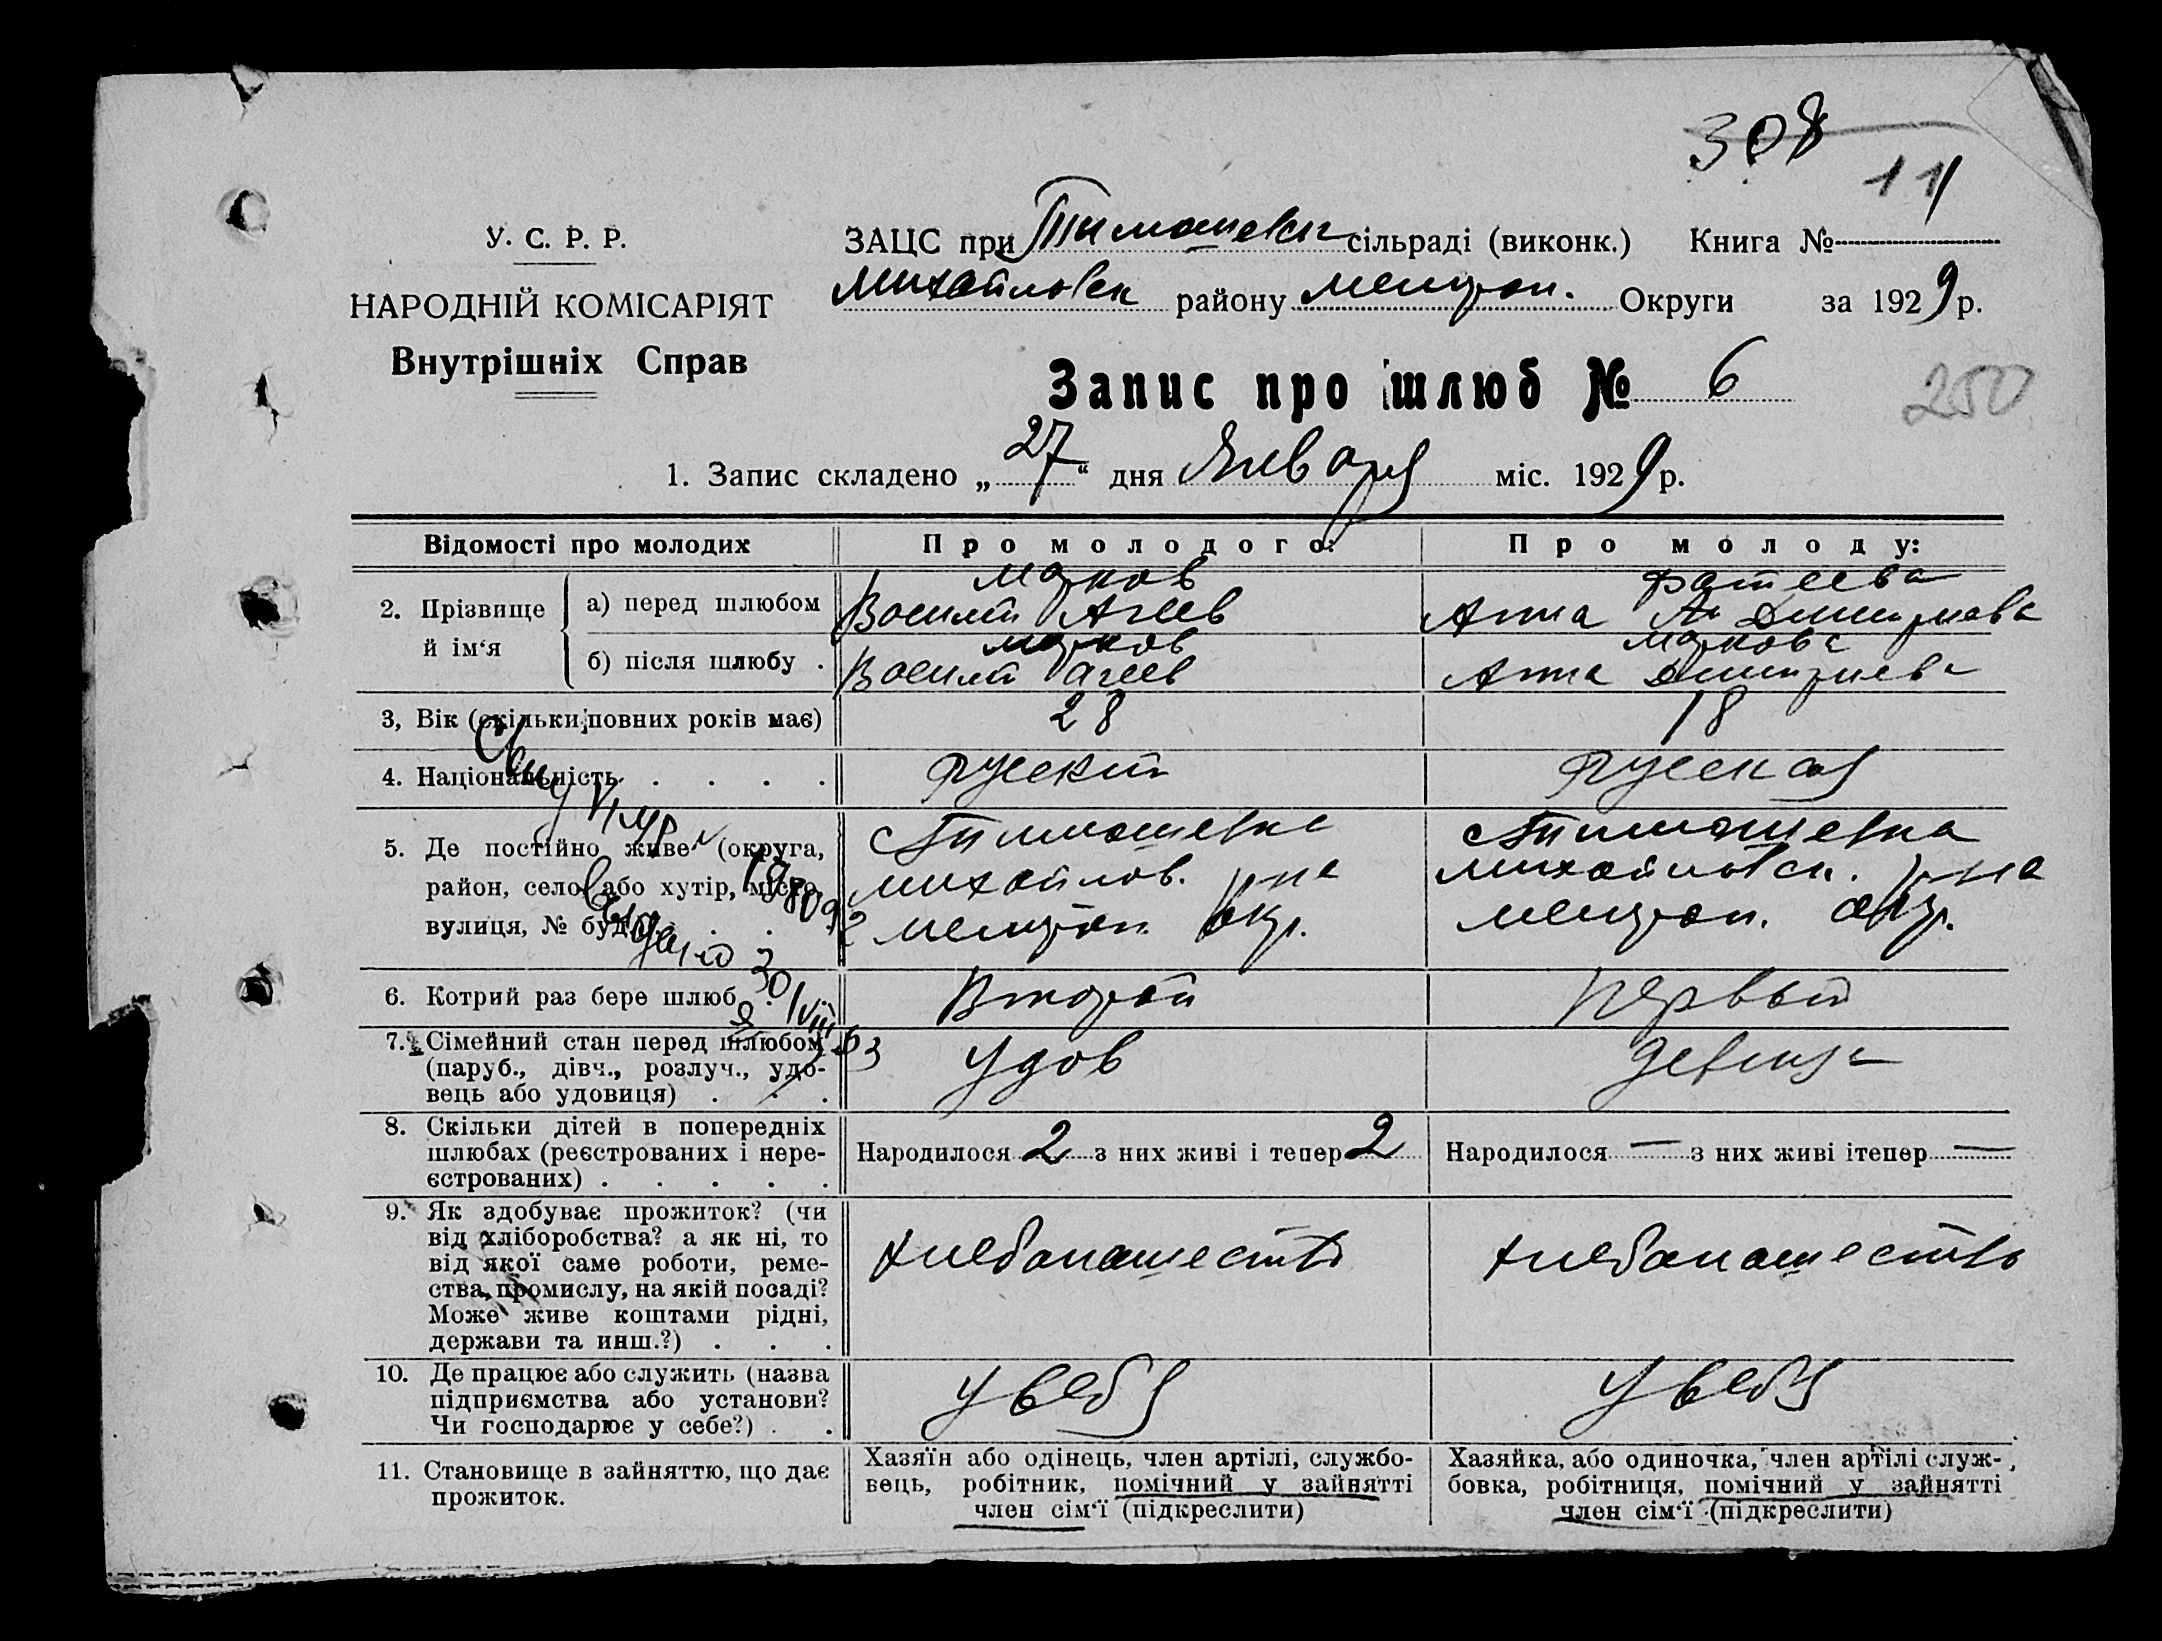 308
11
У. С. Р. Р.
НАРОДНІЙ КОМІСАРІЯТ
Внутрішніх Справ
ЗАЦС при Тимошевск сільраді (виконк.) Книга №
Михайловск району Мелитоп. Округи за 1929 р.
Запис про шлюб № 6
250
1. Запис складено „27“ дня Января міс. 1929 р.
Відомості про молодих Про молодого: Про молоду:
2. Прізвище й ім‘я
а) перед шлюбом
Марков
Василий Агеев
Фатеева
Анна Дмитриева
б) після шлюбу .
Марков
Василий Агеев
Маркова
Анна Дмитриева
3, Вік (скільки повних років має) 28 18
4. Національність . . . . Русский Русская
5. Де постійно живе (округа,
район, село або хутір, місто,
вулиця, № буд.) . . .
с Тимошевка
Михайлов. р-на
Мелитоп. окр.
с Тимошевка
Михайловск. р-на
Мелитоп. окр.
6. Котрий раз бере шлюб . Второй Первый
7. Сімейний стан перед шлюбом
(паруб., дівч., розлуч., удо-
вець або удовиця) . . .
Удов
Девица
8. Скільки дітей в попередніх
шлюбах (реєстрованих і нере-
єстрованих) . . . . .
Народилося 2 з них живі і тепер 2
Народилося — з них живі ітепер —
9. Як здобуває прожиток? (чи
від хліборобства? а як ні, то
від якої саме роботи, реме-
ства, промислу, на якій посаді?
Може живе коштами рідні,
держави та инш.?) . . .
Хлебопашество
Хлебопашество
10. Де працює або служить (назва
підприємства або установи?
Чи господарює у себе?) . .
У себя
У себя
11. Становище в зайняттю, що дає
прожиток.
Хазяїн або одінець, член артілі, службо-
вець, робітник, помічний у зайнятті
член сім‘ї (підкреслити)
Хазяйка, або одиночка, член артілі служ-
бовка, робітниця, помічний у зайнятті
член сім‘ї (підкреслити)